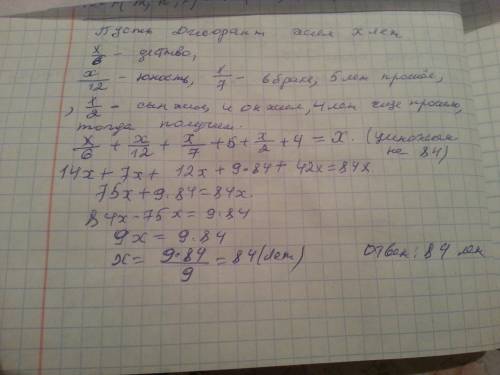 Пусть Диофант жил x лет
x/6 - детство,
x/12 - юность, 1/7 - в браке, 5 лет прошло,
, 1/2 - сын жил, и он жил, 4 лет еще прошло,
тогда получим.
x/6 + x/12 + x/7 + 5 + x/2 + 4 = x. (умножаем на 84)
14x + 7x + 12x + 9·84 + 42x = 84x.
75x + 9·84 = 84x.
84x - 75x = 9·84
9x = 9·84
x = 9·84/9 = 84 (лет)
Ответ: 84 лет